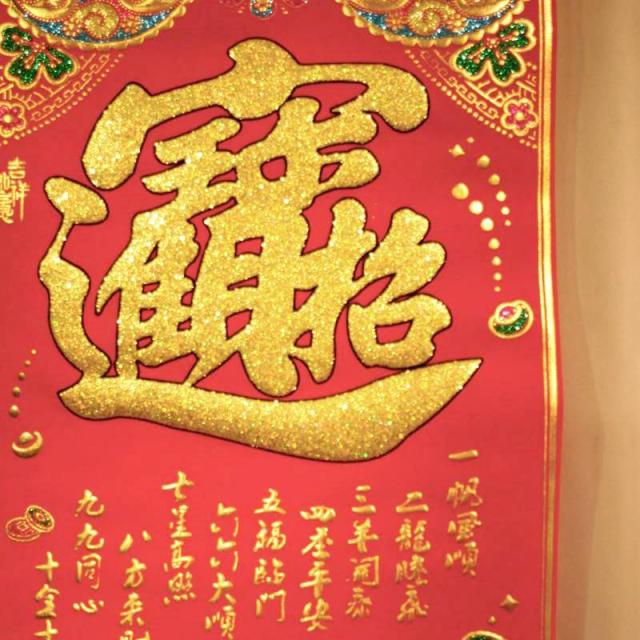 招財進寶
一帆風順
二龍騰飛
三羊開泰
四季平安
五福臨門
六六大順
七星高照
八方來財
九九同心
十全十
吉祥